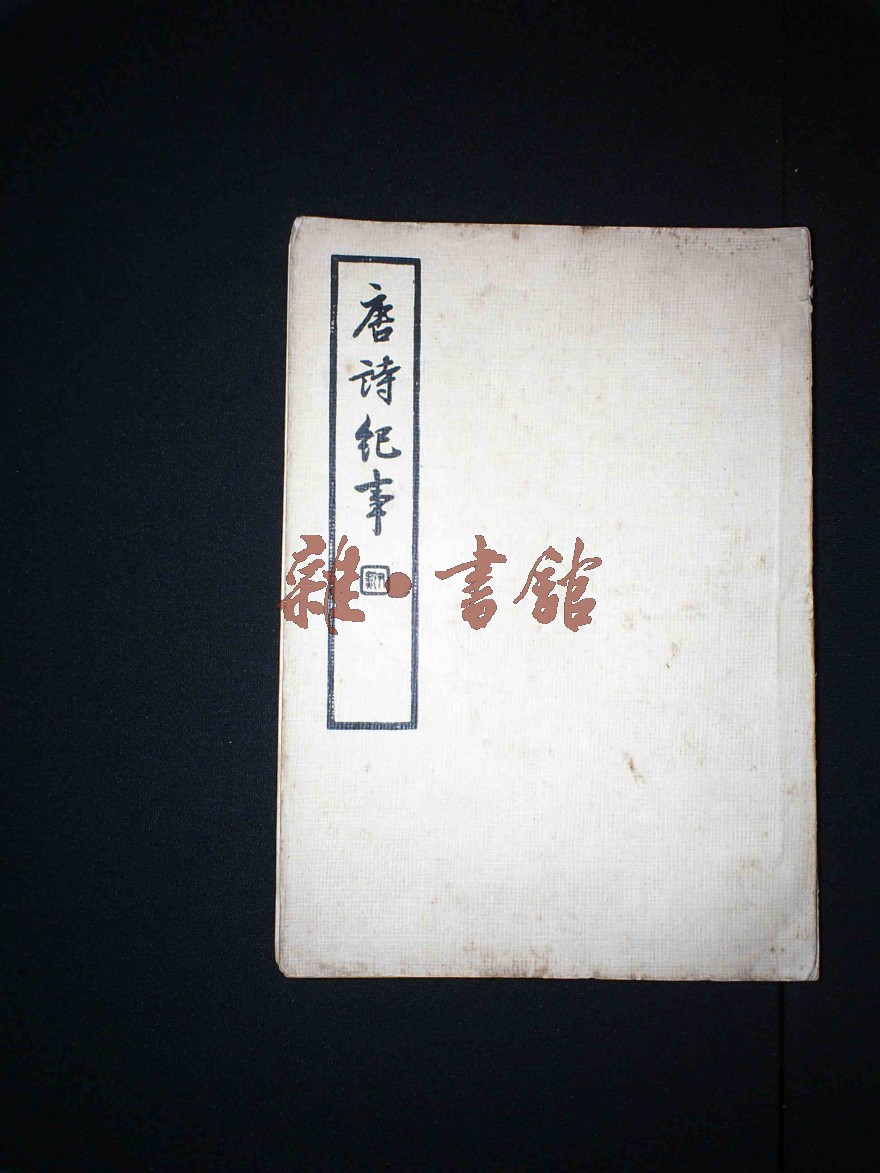 唐詩紀事
雜·書館